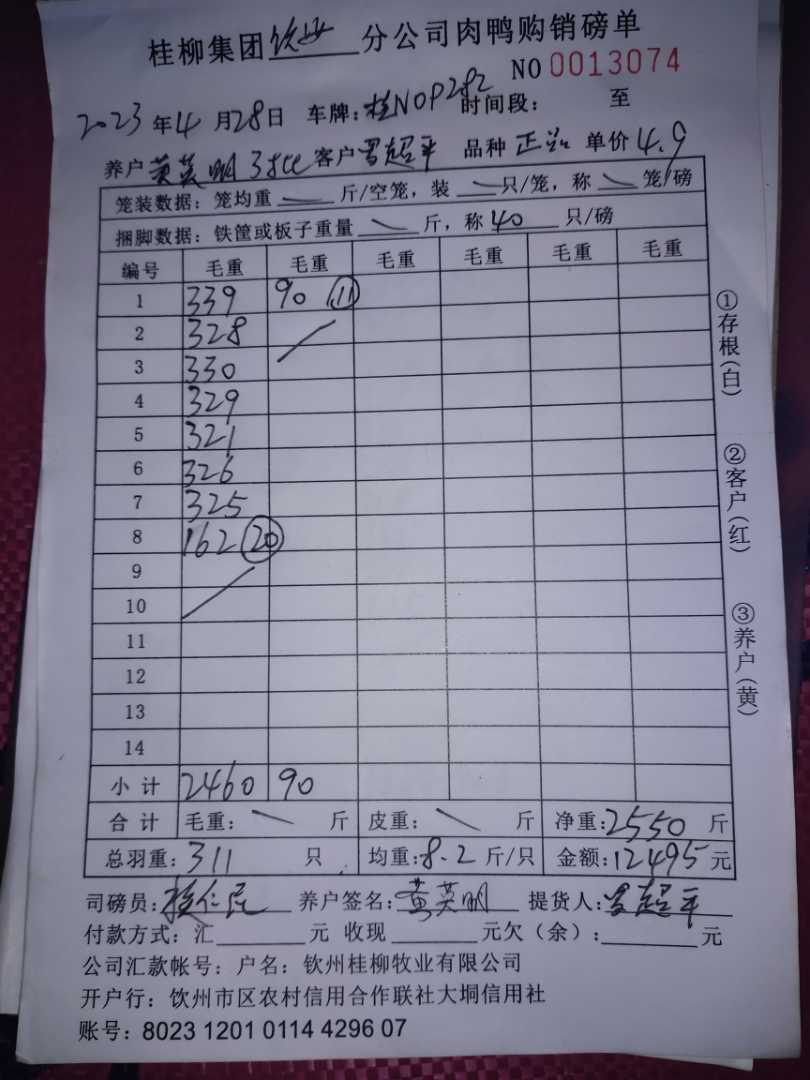 桂柳集团钦州分公司肉鸭购销磅单
NO 0013074
2023年4月28日 车牌:桂NOP282 时间段: 至
养户黄英明 客户罗超平 品种 正 单价4.9
笼装数据:笼均重 斤/空笼,装 只/笼,称 笼/磅
捆脚数据:铁筐或板子重量 斤,称40只/磅
编号 毛重 毛重 毛重 毛重 毛重 毛重
1 339 90 11
2 328
3 330
4 329
5 321
6 326
7 325
8 162 20
9
10
11
12
13
14
小计 2460 90
合计 毛重: 斤 皮重: 斤 净重:2550斤
总羽重:311只 均重:8.2斤/只 金额:12495元
司磅员: 养户签名:黄英明 提货人:罗超平
付款方式:汇 元 收现 元欠(余): 元
公司汇款帐号:户名:钦州桂柳牧业有限公司
开户行:钦州市区农村信用合作联社大垌信用社
账号:8023 1201 0114 4296 07
①存根(白)
②客户(红)
③养户(黄)